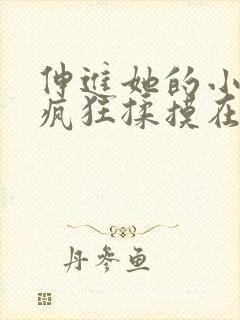 伸进她的小
疯狂揉摸在
丹参鱼